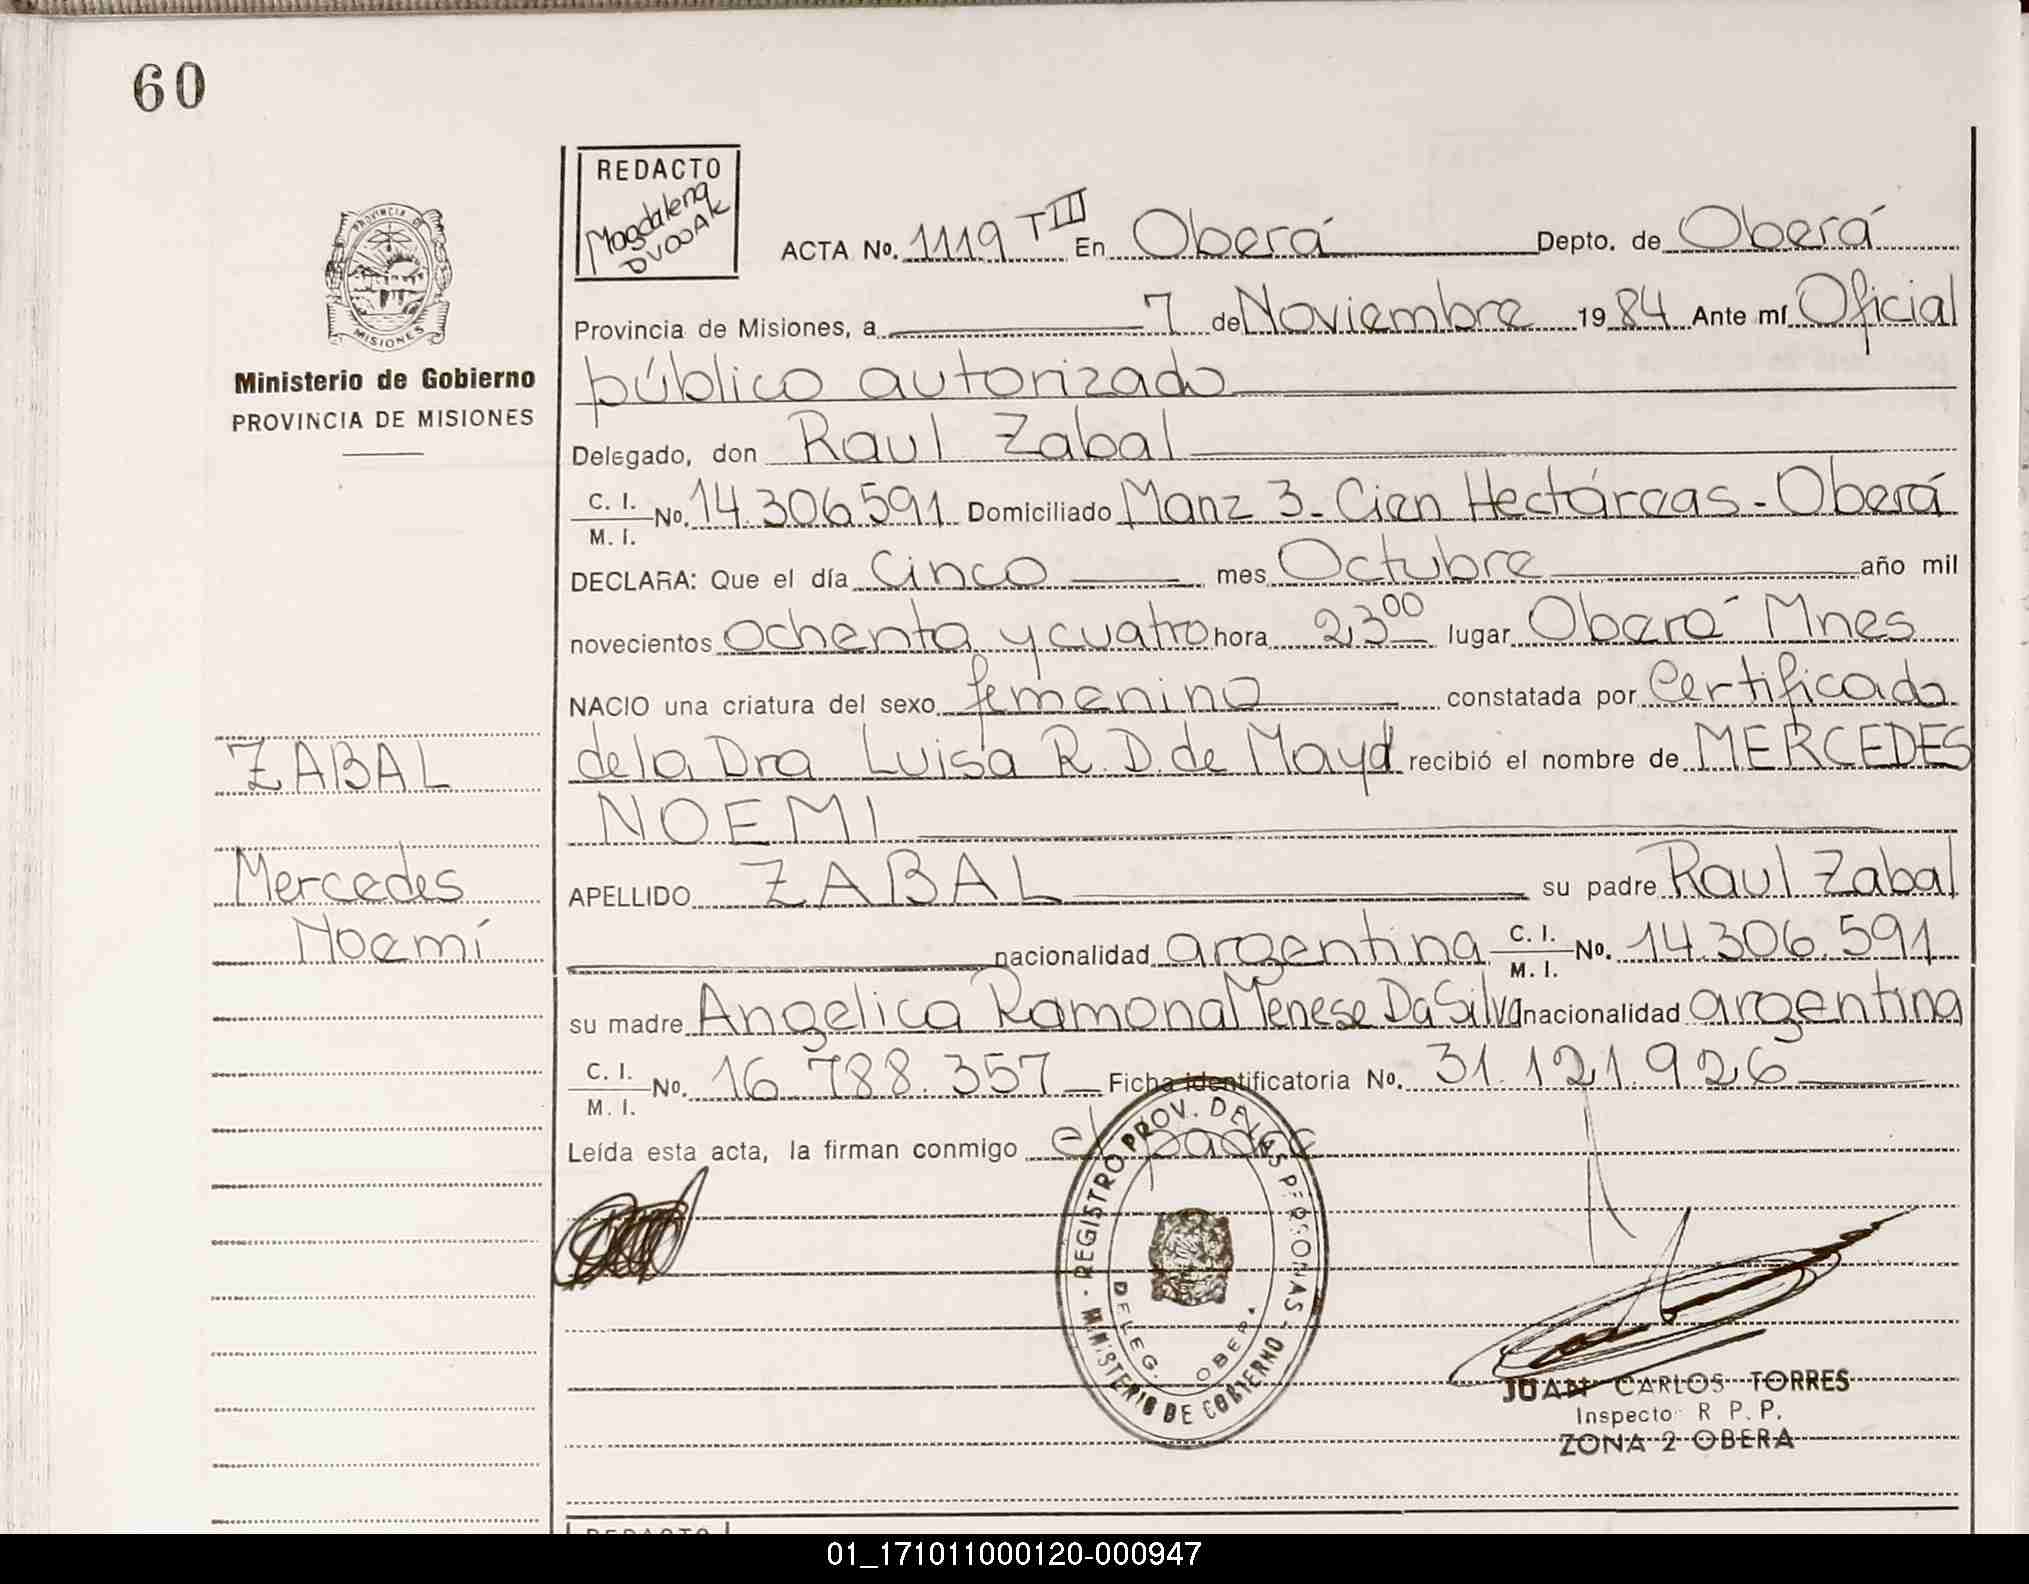 60
REDACTO
Magdalena
DVOJAK
ACTA No. 1119 TIII En Oberá Depto. de Oberá
Provincia de Misiones, a 7 de Noviembre 1984 Ante mí Oficial
PROVINCIA DE
MISIONES
Ministerio de Gobierno
PROVINCIA DE MISIONES
público autorizado
Delegado, don Raul Zabal
C. I.
M. I. No. 14.306.591 Domiciliado Manz 3 - Cien Hectáreas - Oberá
DECLARA: Que el día cinco mes Octubre año mil
novecientos ochenta y cuatro hora 23,00 lugar Oberá Mnes
NACIO una criatura del sexo femenino constatada por Certificado
de la Dra Luisa R. D. de Mayd recibió el nombre de MERCEDES
NOEMI
ZABAL
Mercedes
Noemí
APELLIDO ZABAL su padre Raul Zabal
nacionalidad argentina C. I. M. I. No. 14.306.591
su madre Angelica Ramona Menese Da Silva nacionalidad argentina
C. I.
M. I. No. 16.788.357 Ficha identificatoria No. 31.121.926
Leída esta acta, la firman conmigo el padre
REGISTRO PROV. DE LAS PERSONAS - MINISTERIO DE GOBIERNO -
DELEG. OBERA
JUAN CARLOS TORRES
Inspector R P. P.
ZONA 2 OBERA
REDACTO
01_171011000120-000947